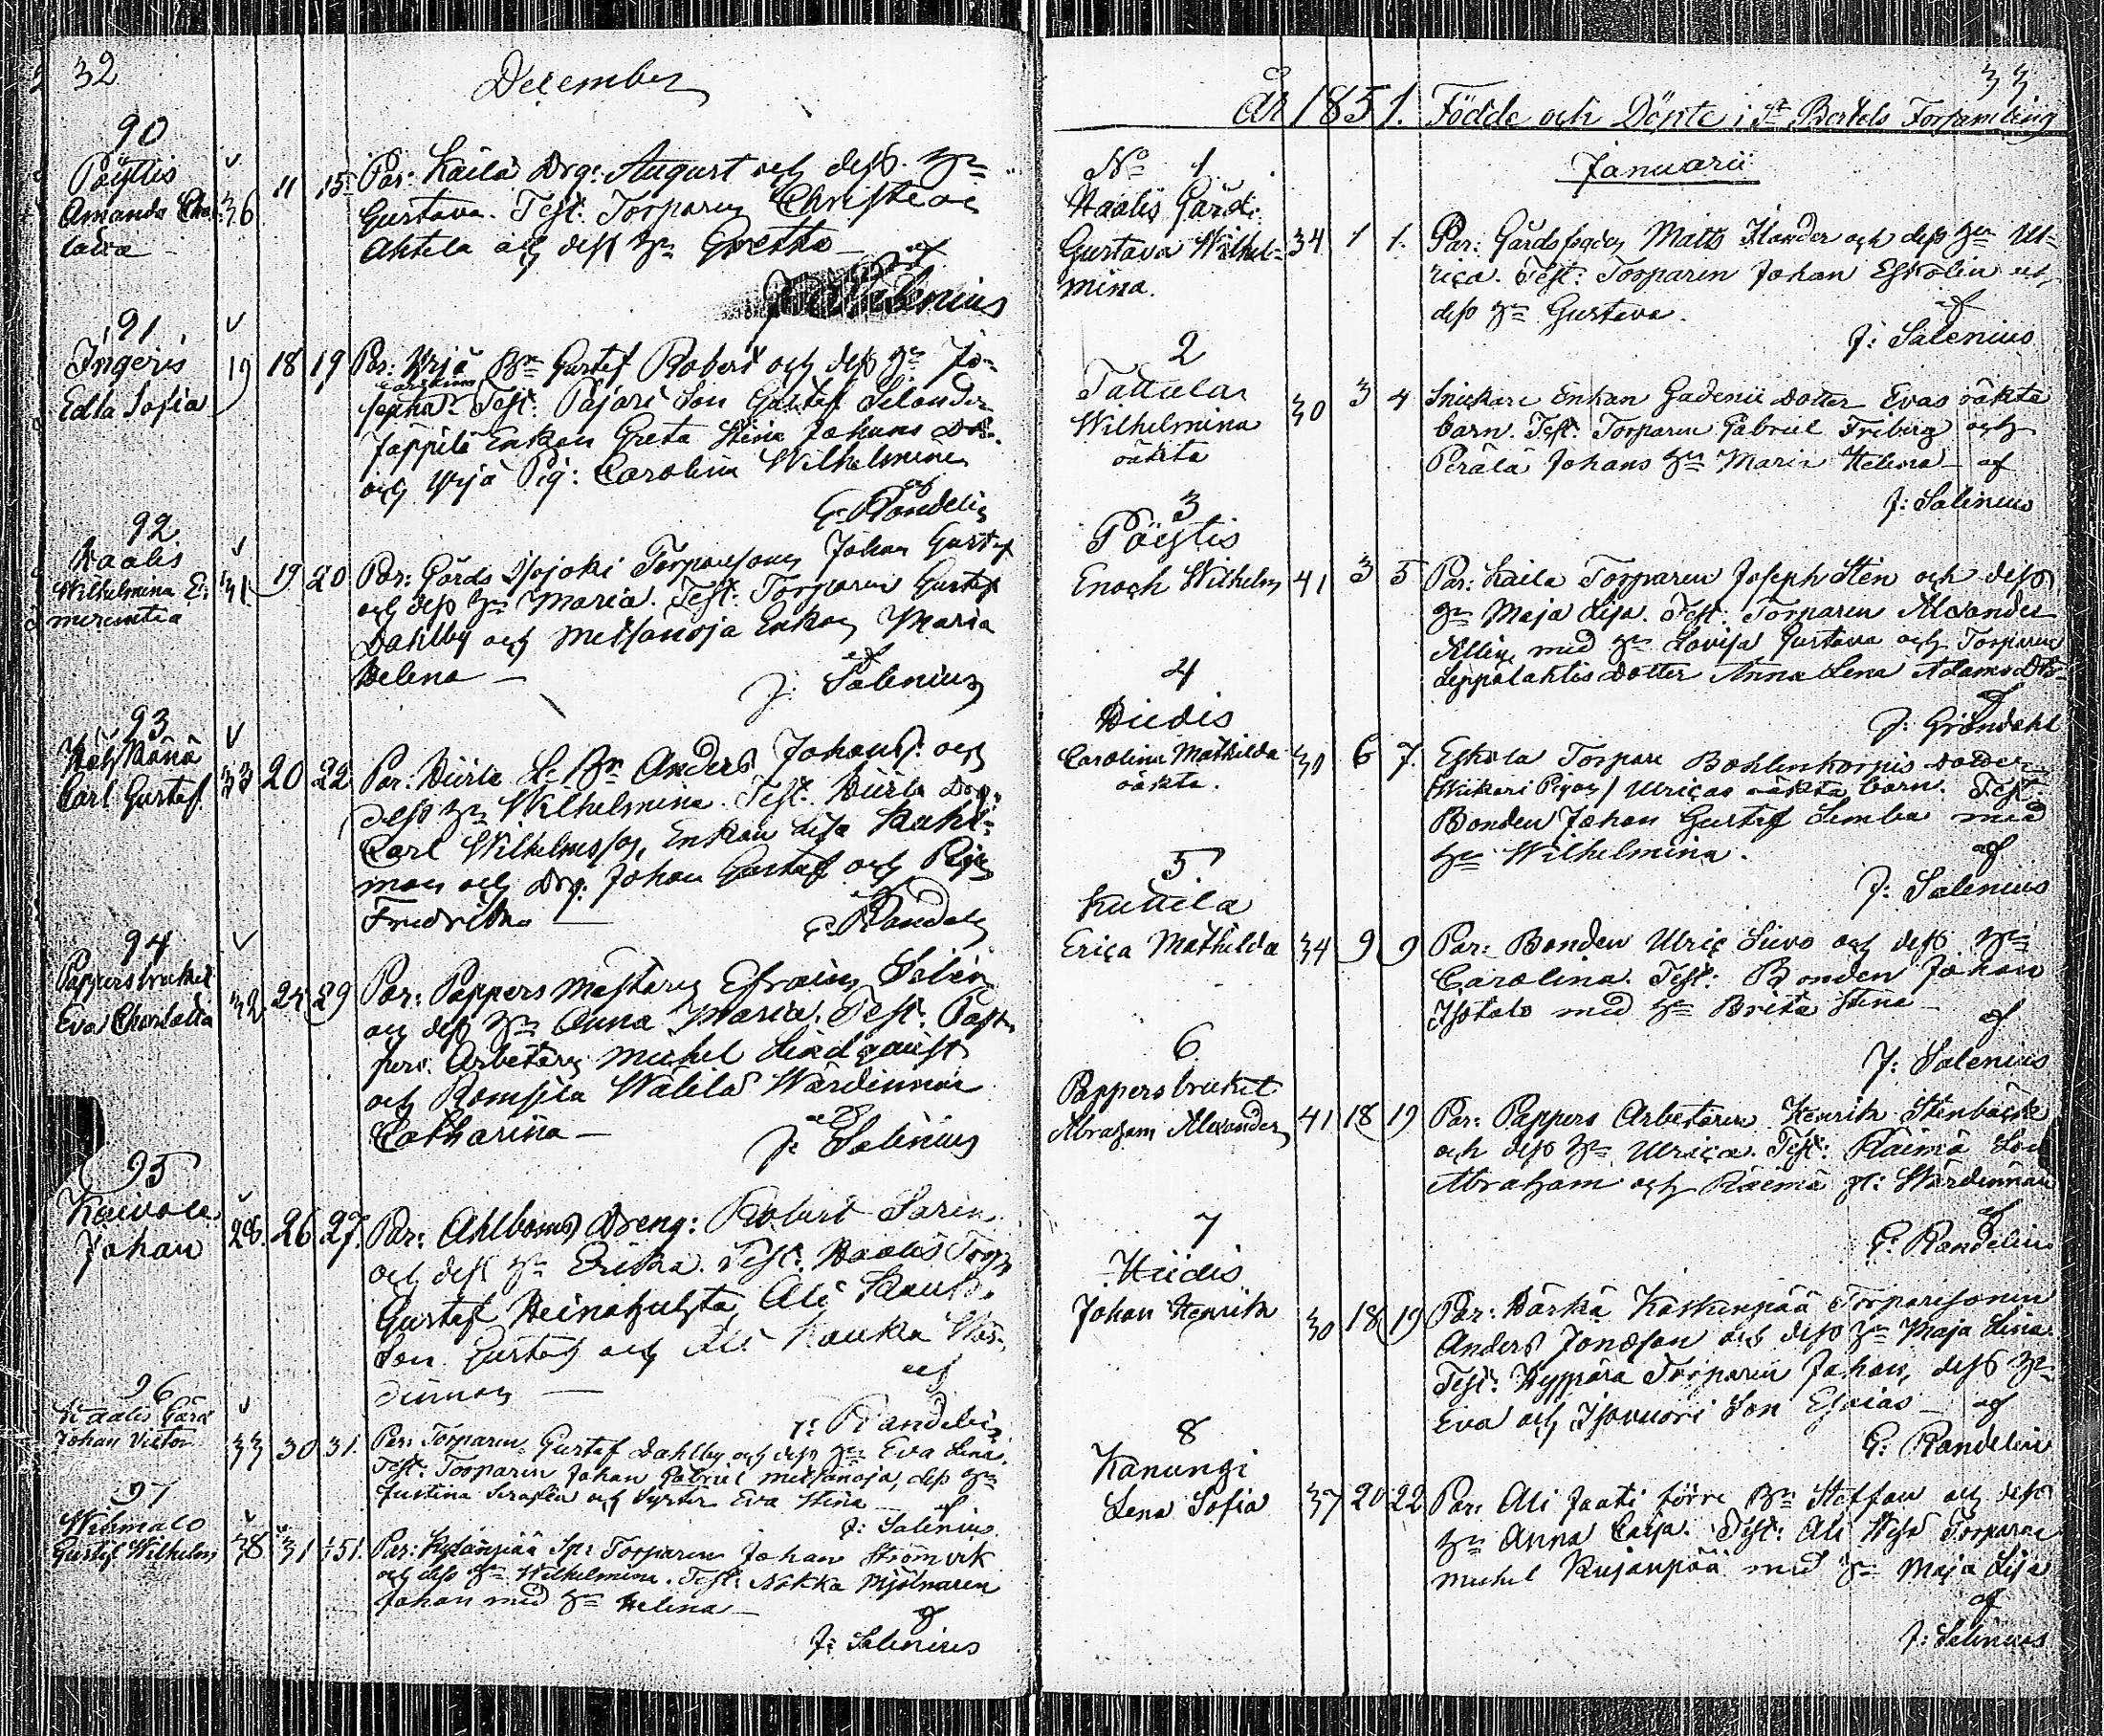 32
December
90
Pöytis
Amanda Char
lotta
36 11 15
Par: Kaila Drg: August och dess Hu
Gustava. Test: Torparen Christian
Ahtela och dess Hu Gretha
af
J: Salenius
91
Ingeris
Edla Sofia
19 18 19
Par: Yrjä Bn Gustef Robert och dess Hu Jo-
sepha. Test: Pajari Son Gustaf Selander
Jäppilä Enkan Greta Stina Johans Dr.
och Yrjä Pig: Carolina Wilhelmina
af
G: Randelin
92
Haalis
Wilhelmina E:
merentia
31 19 20
Par: Gårds Isojoki Torparesonen Johan Gustaf
och dess Hu Maria. Test: Torparen Gustaf
Dahlby och Metsänoja Enkan Maria
Helena
af
J: Salenius
93
Carl Gustaf
33 20 22
Par: Hiirla L. Bn Anders Johans: och
dess Hu Wilhelmina. Test: Hiirla Drg:
Carl Wilhelmsson, Enkan Lisa
man och Drg: Johan Gustaf och Pigan
Fredrika
G: Randelin
94
Pappersbruket
Eva Charlotta
32 24 29
Par: Pappers Mästaren Efraim Salén
och dess Hu Anna Maria. Test: Papp-
pers. Arbetaren Michel Lindqvist
och Romsila Wälilä Wärdinnan
Catharina
af
J: Salenius
95
Kaivola
Johan
28. 26 27.
Par: Ahlboms Dreng: Robert Sarin
och dess Hu Erika. Test: Haalis Torp
Gustaf Heinahuhta, Ali
Son Gustaf och Ali Kauka Wär-
dinnan
af
G: Randelin
96
Haalis Gård
Johan Victor
33 30 31.
Par: Torparen Gustaf Dahlby och dess Hu Eva Lena.
Test: Torparen Johan Gabriel Metsänoja, dess Hu
Justina Serafia och Syster Eva Stina
af
J: Salenius.
97
Gustaf Wilhelm
38 31 1/51.
Par: Kylänpää Spr Torparen Johan Strömvik
och dess Hu Wilhelmina. Test: Nokka Mjölnaren
Johan med Hu Helena
af
J: Salenius
33
År 1851. Födde och Döpte i St Bertels Församling
Januarii
No 1.
Haalis Gård:
Gustava Wilhel-
mina.
34 1 1.
Par: Gårdsfogden Matts Ilander och dess Hu Ul-
rica. Test: Torparen Johan Eskolin och
dess Hu Gustava.
af
J: Salenius
2
Tattula
Wilhelmina
oäkta
30 3 4
Snickare Enkan Gadenii Dotter Evas oäkta
barn. Test: Torparen Gabriel Friberg och
Perälä Johans Hu Maria Helena af
J: Salenius
3
Pöytis
Enoch Wilhelm
41 3 5
Par: Kaila Torparen Joseph Sten och dess
Hu Maja Lisa. Test: Torparen Alexander
Allin med Hu Lovisa Gustava och Torparen
Leppälahtis Dotter Anna Lena Adamsdtr
af
J: Gröndahl
4
Hiidis
Carolina Mathilda
oäkta.
30 6 7.
Eskola Torpare Bohlenkorpis Dotter
(Wiikari Pigan) Ulricas oäkta barn. Test:
Bonden Johan Gustaf Simba med
Hu Wilhelmina.
af
J: Salenius
5
Kuttila
Erica Mathilda
34 9 9
Par: Bonden Ulric Siivo och dess Hu
Carolina. Test: Bonden Johan
Isotalo med Hu Brita Stina
af
J: Salenius
6
Pappersbruket
Abraham Alexander
41 18 19
Par: Pappers Arbetaren Henrik Stenbäck
och dess Hu Ulrica. Test: Räimä Son
Abraham och Räimä gl: Wärdinnan
af
G: Randelin
7
Hiidis
Johan Henrik
30 18 19
Par: Härkä Koskenpää Torparesonen
Anders Jonasson och dess Hu Maja Lena
Test: Hyppärä Torparen Johan, dess Hu
Eva och Isovuori Son Esaias af
G: Randelin
8
Kanungi
Lena Sofia
37 20 22
Par: Ali Jaati förre Bn Steffan och dess
Hu Anna Caisa. Test: Ali Torparen
Michel Kujanpää med Hu Maja Lisa
af
J: Salenius